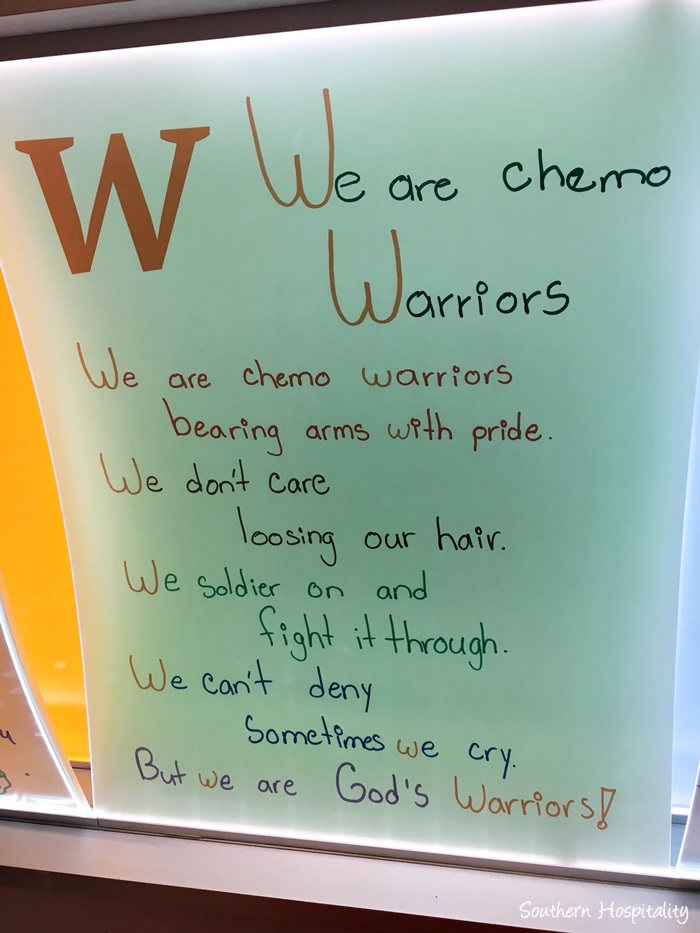 W
We are chemo
Warriors
We are chemo warriors
bearing arms with pride.
We don't care
loosing our hair.
We soldier on and
fight it through.
We can't deny
Sometimes we cry.
But we are God's Warriors!
Southern Hospitality